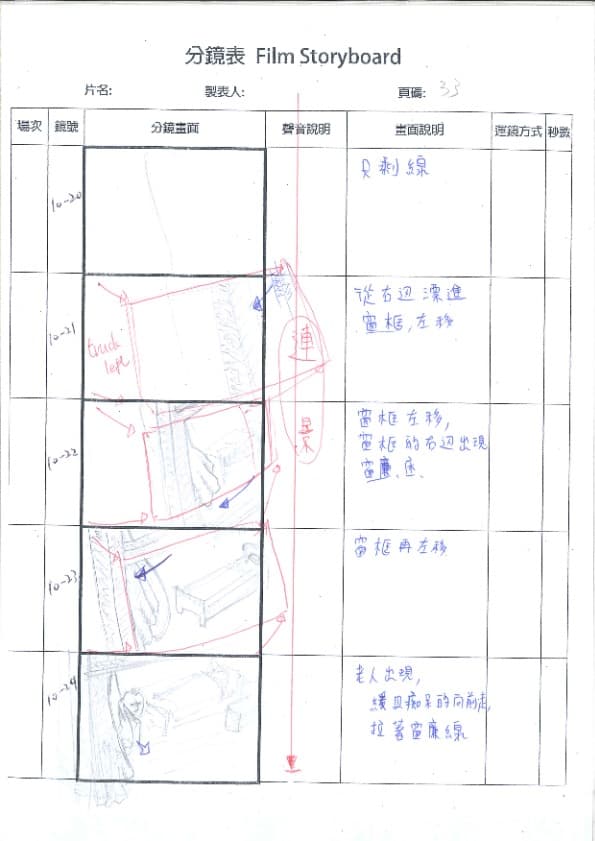 分鏡表 Film Storyboard
片名: 製表人: 頁碼: 33
場次 鏡號 分鏡畫面 聲音說明 畫面說明 運鏡方式 秒數
10-20
只剩線
10-21
truck
left
連
從右边漂進
窗框,左移
10-22
景
窗框左移,
窗框的右边出現
窗廉、
10-23
窗框再左移
10-24
老人出現,
緩且痴呆的向前走,
拉著窗廉線